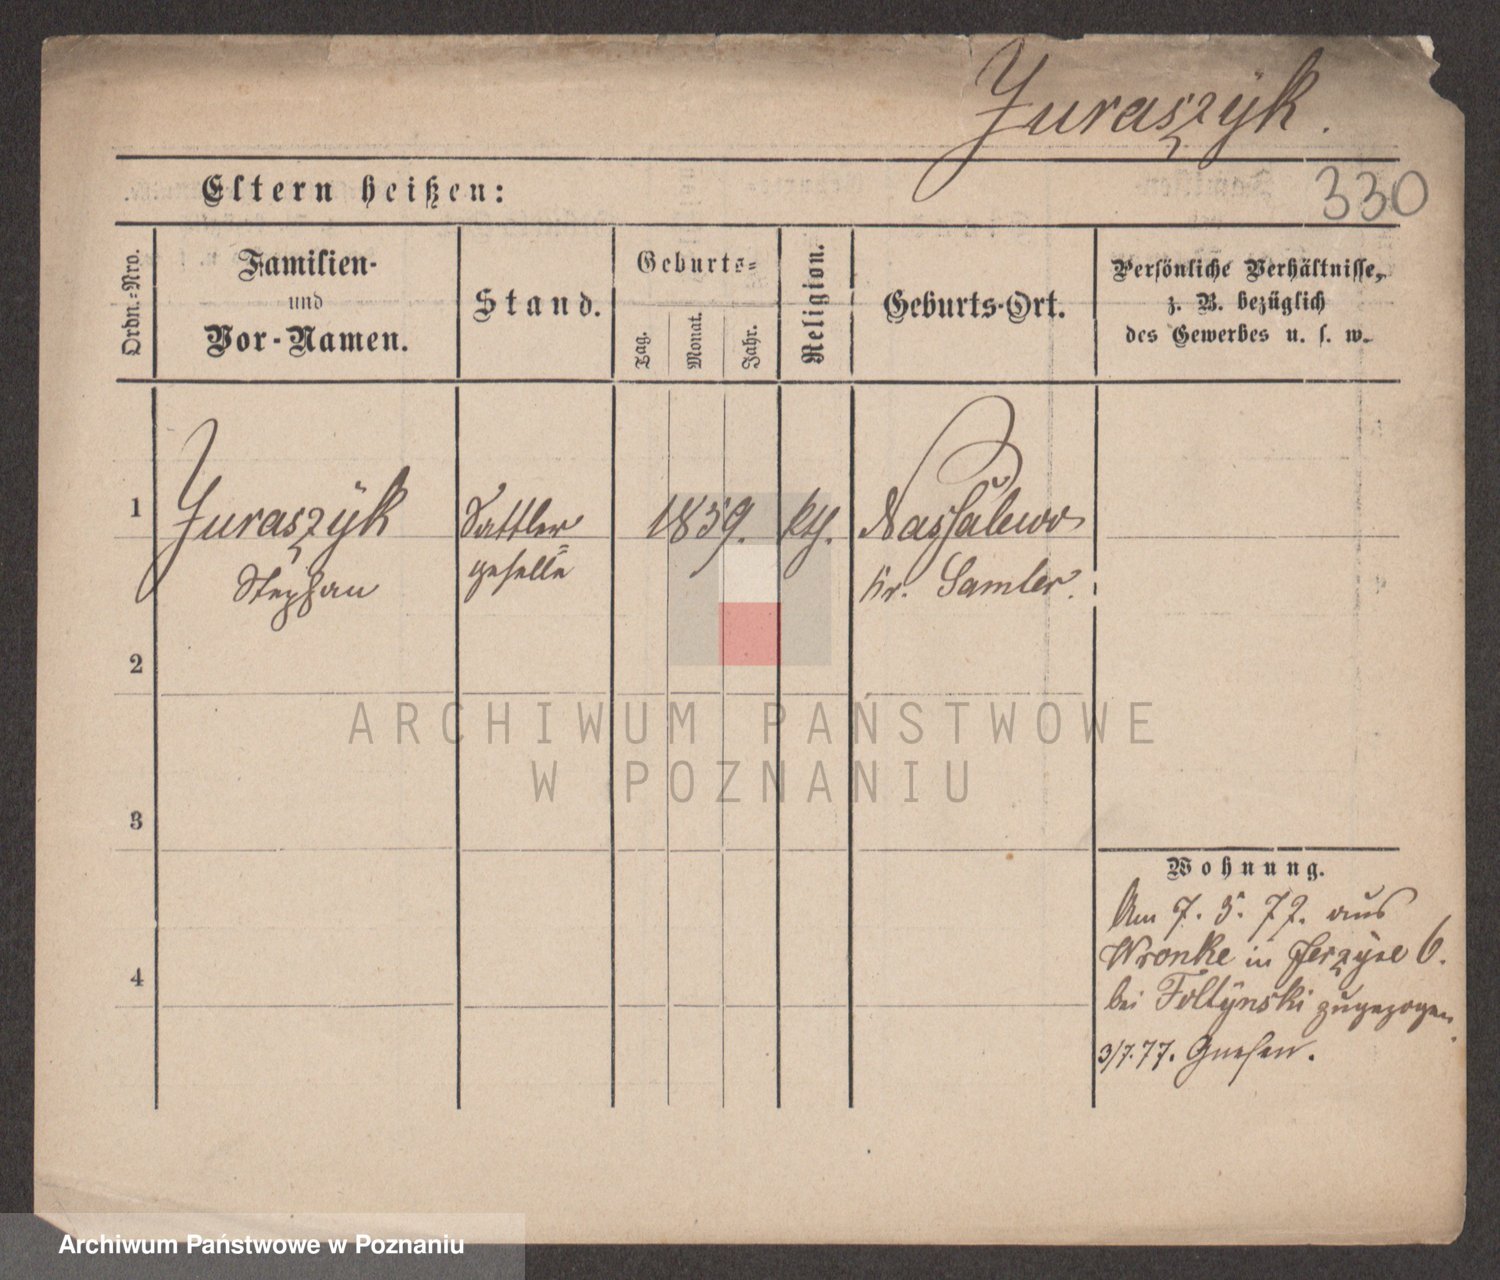 Juraszÿk.
330
Eltern heißen:
Ordn.-Nro.
Familien-
und
Vor-Namen.
Stand.
Geburts-
Tag.
Monat.
Jahr.
Religion.
Geburts-Ort.
Persönliche Verhältnisse,
z. B. bezüglich
des Gewerbes u. s. w.
1
Juraszÿk
Stephan
Sattler
geselle
1859.
kth.
Kr. Samter.
2
3
4
Wohnung.
Am 7. 5. 77. aus
Wronke in Jerzÿce 6.
bei Foltÿnski zugezogen.
3/7.77. Gnesen.
ARCHIWUM PAŃSTWOWE
W POZNANIU
Archiwum Państwowe w Poznaniu